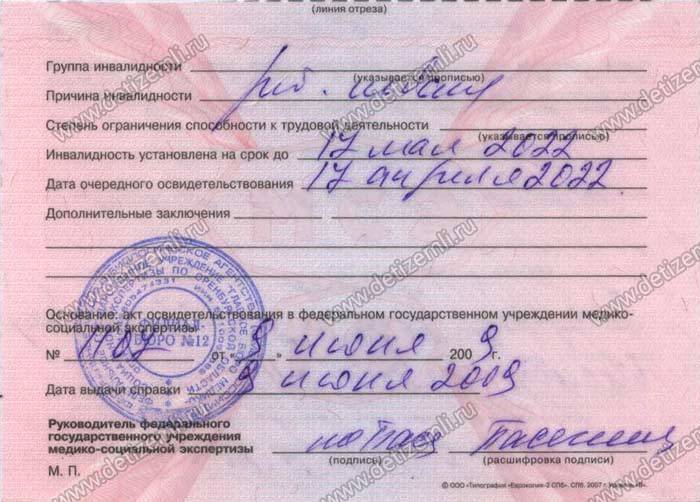 (линия отреза)
Группа инвалидности
(указывается прописью)
Причина инвалидности
Степень ограничения способности к трудовой деятельности
(указывается прописью)
Инвалидность установлена на срок до 17 мая 2022
Дата очередного освидетельствования 17 апреля 2022
Дополнительные заключения
Основание: акт освидетельствования в федеральном государственном учреждении медико-
социальной экспертизы
№ от « 9 » июня 2009 г.
Дата выдачи справки 9 июня 2009
Руководитель федерального
государственного учреждения
медико-социальной экспертизы
(подпись) (расшифровка подписи)
М. П.
БЮРО №12
www.detizemli.ru